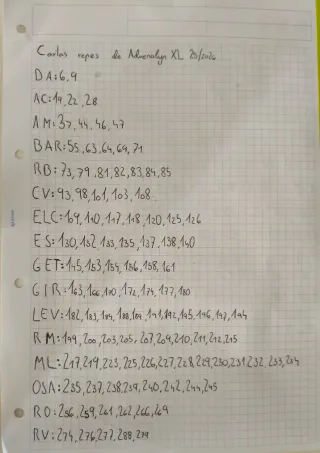 Cartas repes de Adrenalyn XL 25/2026
DA:6,9
AC:19,22,28
AM:37,44,46,47
BAR:55,63,64,69,71
RB:73,79,81,82,83,84,85
CV:93,98,101,103,108
ELC:109,110,117,118,120,125,126
ES:130,132,133,135,137,138,140
GET:145,153,154,156,158,161
GIR:163,166,170,172,174,177,180
LEV:182,183,184,188,189,191,192,195,196,197,194
RM:199,200,203,205,207,209,210,211,212,215
ML:217,219,223,225,226,227,228,229,230,231,232,233,234
OSA:235,237,238,239,240,242,244,245
RO:256,259,261,262,266,269
RV:274,276,277,288,279